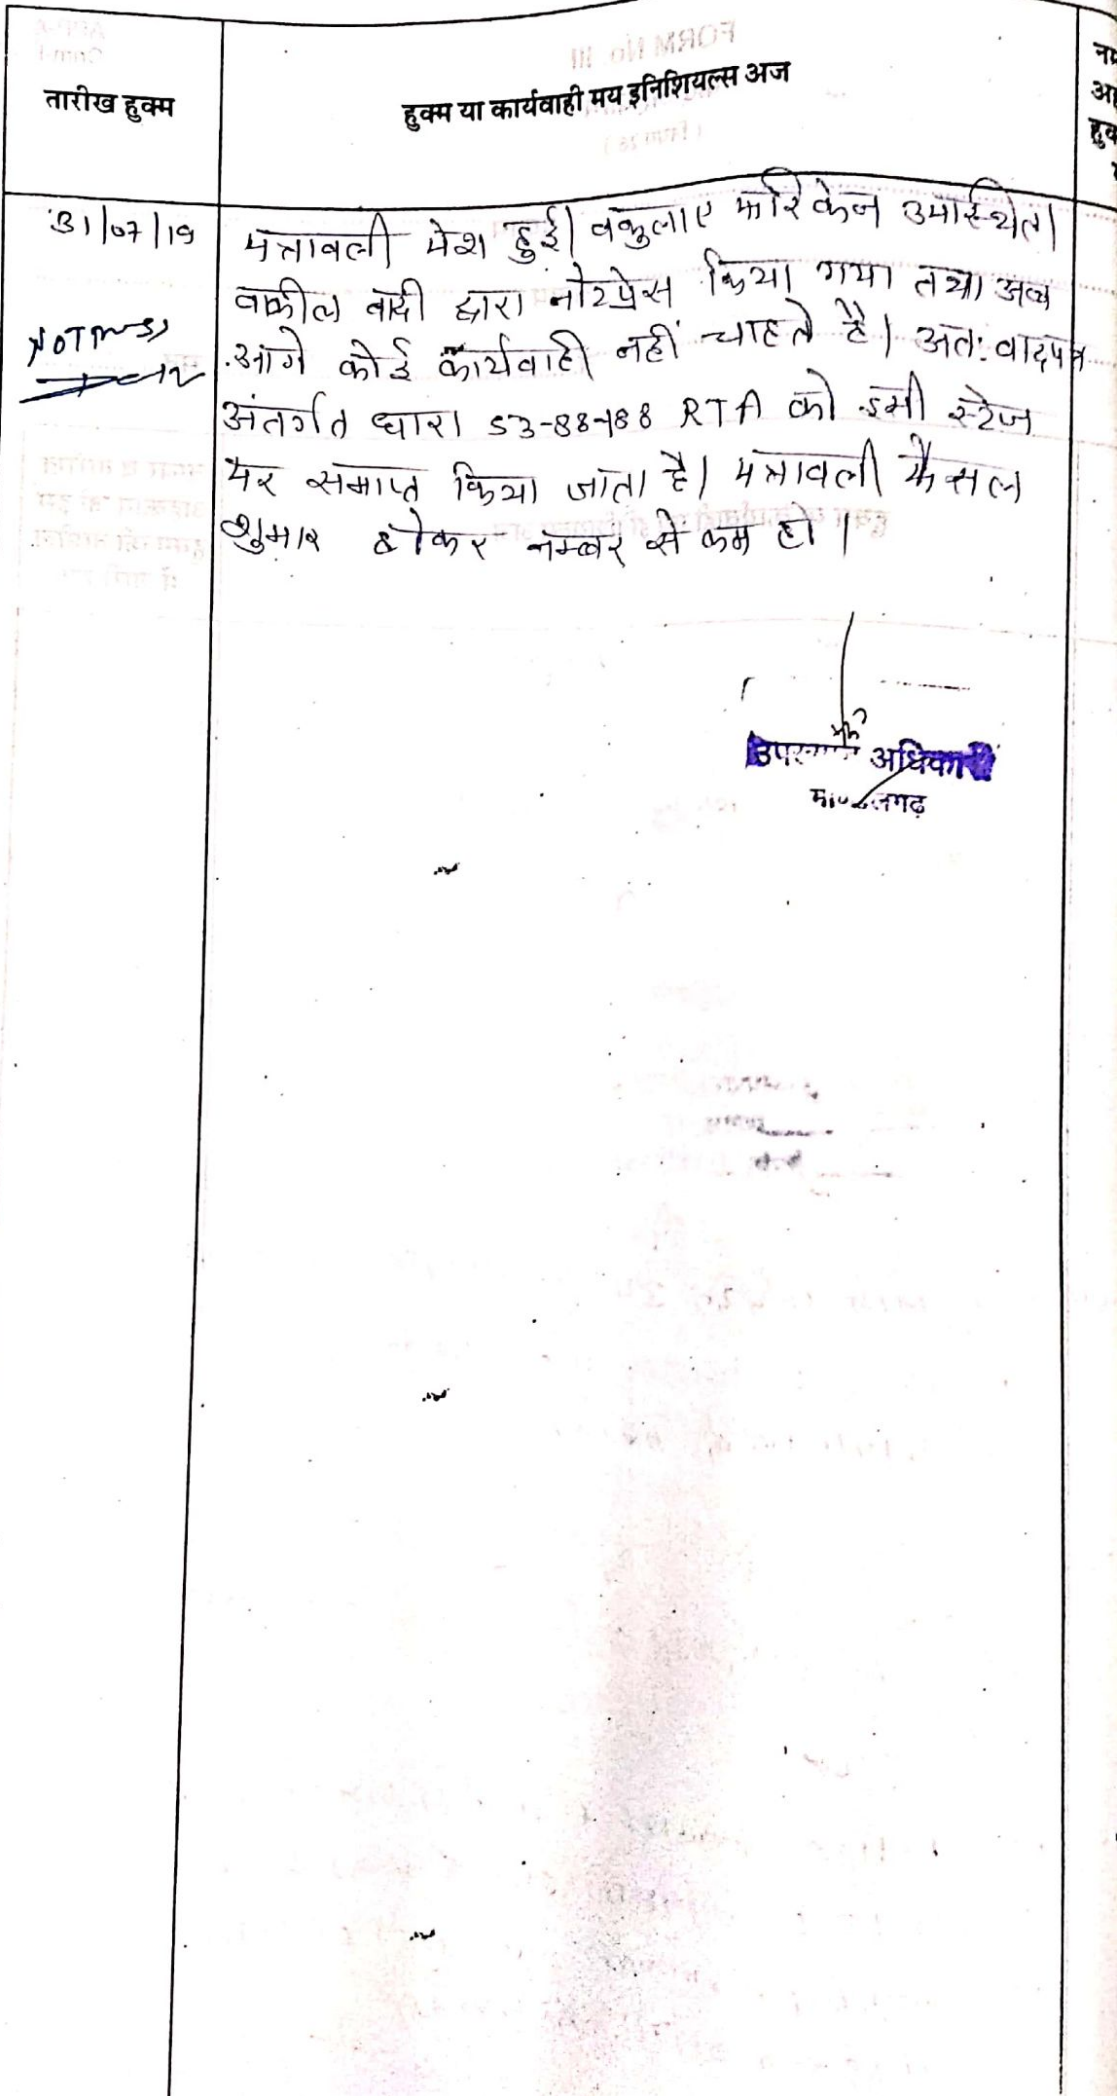 तारीख हुक्म
हुक्म या कार्यवाही मय इनिशियल्स अज
31/07/19
पत्रावली पेश हुई। वकुलाए फरिकेन उपस्थित।
वकील वादी द्वारा नोटप्रेस किया गया तथा अब
आगे कोई कार्यवाही नहीं चाहते है। अतः वादपत्र
अंतर्गत धारा 53-88-188 RTA को इसी स्टेज
पर समाप्त किया जाता है। पत्रावली फैसल
शुमार होकर नम्बर से कम हो।
NOT
अधिकारी